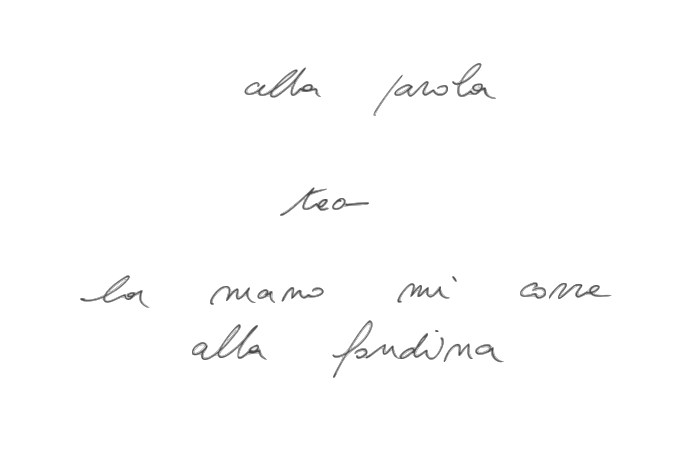 alla parola
teo
la mano mi corre
alla fondina